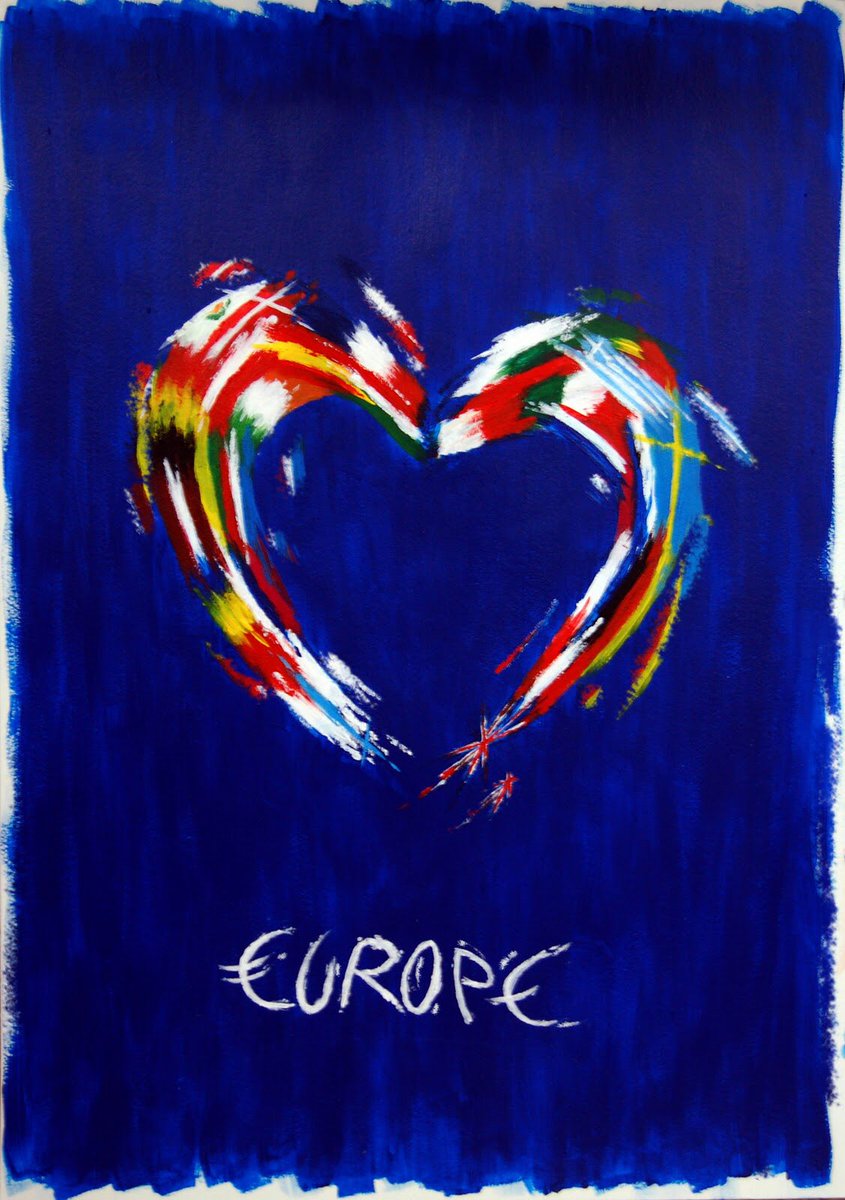 €UROP€